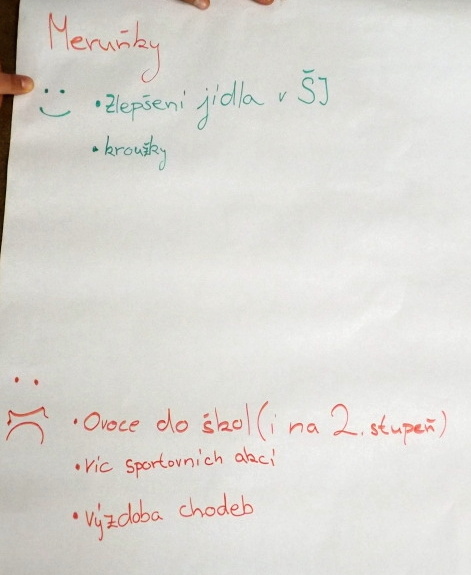 Meruňky
• Zlepšení jídla v ŠJ
• kroužky
• Ovoce do škol (i na 2. stupeň)
• víc sportovních akcí
• výzdoba chodeb